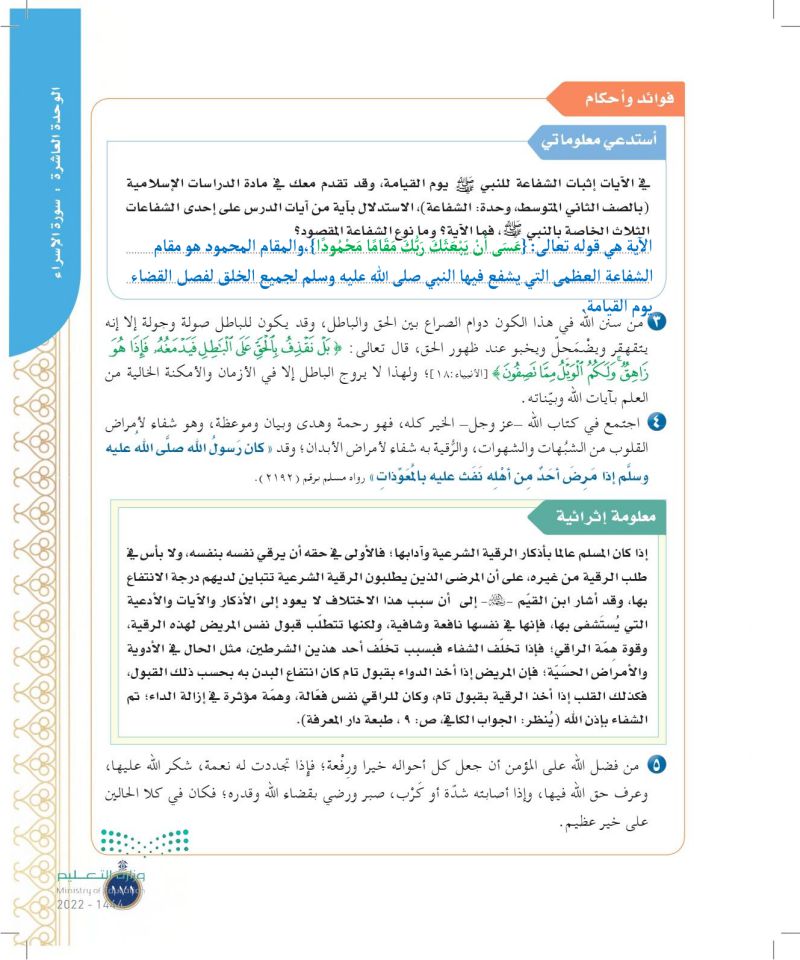 الوحدة العاشرة : سورة الإسراء
فوائد وأحكام
أستدعي معلوماتي
في الآيات إثبات الشفاعة للنبي ﷺ يوم القيامة، وقد تقدم معك في مادة الدراسات الإسلامية
(بالصف الثاني المتوسط، وحدة: الشفاعة)، الاستدلال بآية من آيات الدرس على إحدى الشفاعات
الثلاث الخاصة بالنبي ﷺ، فما الآية؟ وما نوع الشفاعة المقصود؟
الآية هي قوله تعالى: {عَسَى أَن يَبْعَثَكَ رَبُّكَ مَقَامًا مَحْمُودًا}،والمقام المحمود هو مقام
الشفاعة العظمى التي يشفع فيها النبي صلى الله عليه وسلم لجميع الخلق لفصل القضاء
يوم القيامة
٣ من سنن الله في هذا الكون دوام الصراع بين الحق والباطل، وقد يكون للباطل صولة وجولة إلا إنه
يتقهقر ويضْمَحلّ ويخبو عند ظهور الحق، قال تعالى: ﴿بَلْ نَقْذِفُ بِٱلْحَقِّ عَلَى ٱلْبَٰطِلِ فَيَدْمَغُهُۥ فَإِذَا هُوَ
زَاهِقٌ ۚ وَلَكُمُ ٱلْوَيْلُ مِمَّا تَصِفُونَ﴾ [الأنبياء:١٨]؛ ولهذا لا يروج الباطل إلا في الأزمان والأمكنة الخالية من
العلم بآيات الله وبيّناته.
٤ اجتمع في كتاب الله -عز وجل- الخير كله، فهو رحمة وهدى وبيان وموعظة، وهو شفاء لأمراض
القلوب من الشبُهات والشهوات، والرُّقية به شفاء لأمراض الأبدان؛ وقد « كان رَسولُ الله صلَّى الله عليه
وسلَّم إذا مَرِضَ أحَدٌ مِن أهْلِه نَفَث عليه بالمُعَوِّذاتِ » رواه مسلم برقم (٢١٩٢).
معلومة إثرائية
إذا كان المسلم عالما بأذكار الرقية الشرعية وآدابها؛ فالأولى في حقه أن يرقي نفسه بنفسه، ولا بأس في
طلب الرقية من غيره، على أن المرضى الذين يطلبون الرقية الشرعية تتباين لديهم درجة الانتفاع
بها، وقد أشار ابن القيّم -رحمه الله- إلى أن سبب هذا الاختلاف لا يعود إلى الأذكار والآيات والأدعية
التي يُستَشفى بها، فإنها في نفسها نافعة وشافية، ولكنها تتطلّب قبول نفس المريض لهذه الرقية،
وقوة هِمّة الراقي؛ فإذا تخلّف الشفاء فبسبب تخلّف أحد هذين الشرطين، مثل الحال في الأدوية
والأمراض الحسّيّة؛ فإن المريض إذا أخذ الدواء بقبول تام كان انتفاع البدن به بحسب ذلك القبول،
فكذلك القلب إذا أخذ الرقية بقبول تام، وكان للراقي نفس فعّالة، وهمّة مؤثرة في إزالة الداء؛ تم
الشفاء بإذن الله (يُنظر: الجواب الكافي، ص: ٩ ، طبعة دار المعرفة).
٥ من فضل الله على المؤمن أن جعل كل أحواله خيرا ورِفْعة؛ فإذا تجددت له نعمة، شكر الله عليها،
وعرف حق الله فيها، وإذا أصابته شدّة أو كَرْب، صبر ورضي بقضاء الله وقدره؛ فكان في كلا الحالين
على خير عظيم.
وزارة التعليم
Ministry of Education
2022 - 1444